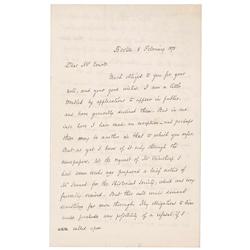 Boston 8 February 1875
Dear Mr
Much obliged to you for your
note, and your good wishes. I am a little
troubled by applications to appear in public,
and have generally declined them. But in one
case here I have made an exception — and perhaps
there may be another as that to which you refer.
But as yet I have of it only through the
newspapers. At the request of Mr Winthrop I
had some weeks ago prepared a brief notice of
Mr for the Historical Society, which was very
received. But this note would demand
something far more thorough. My obligations to him
would preclude any possibility of a refusal if I
were called upon